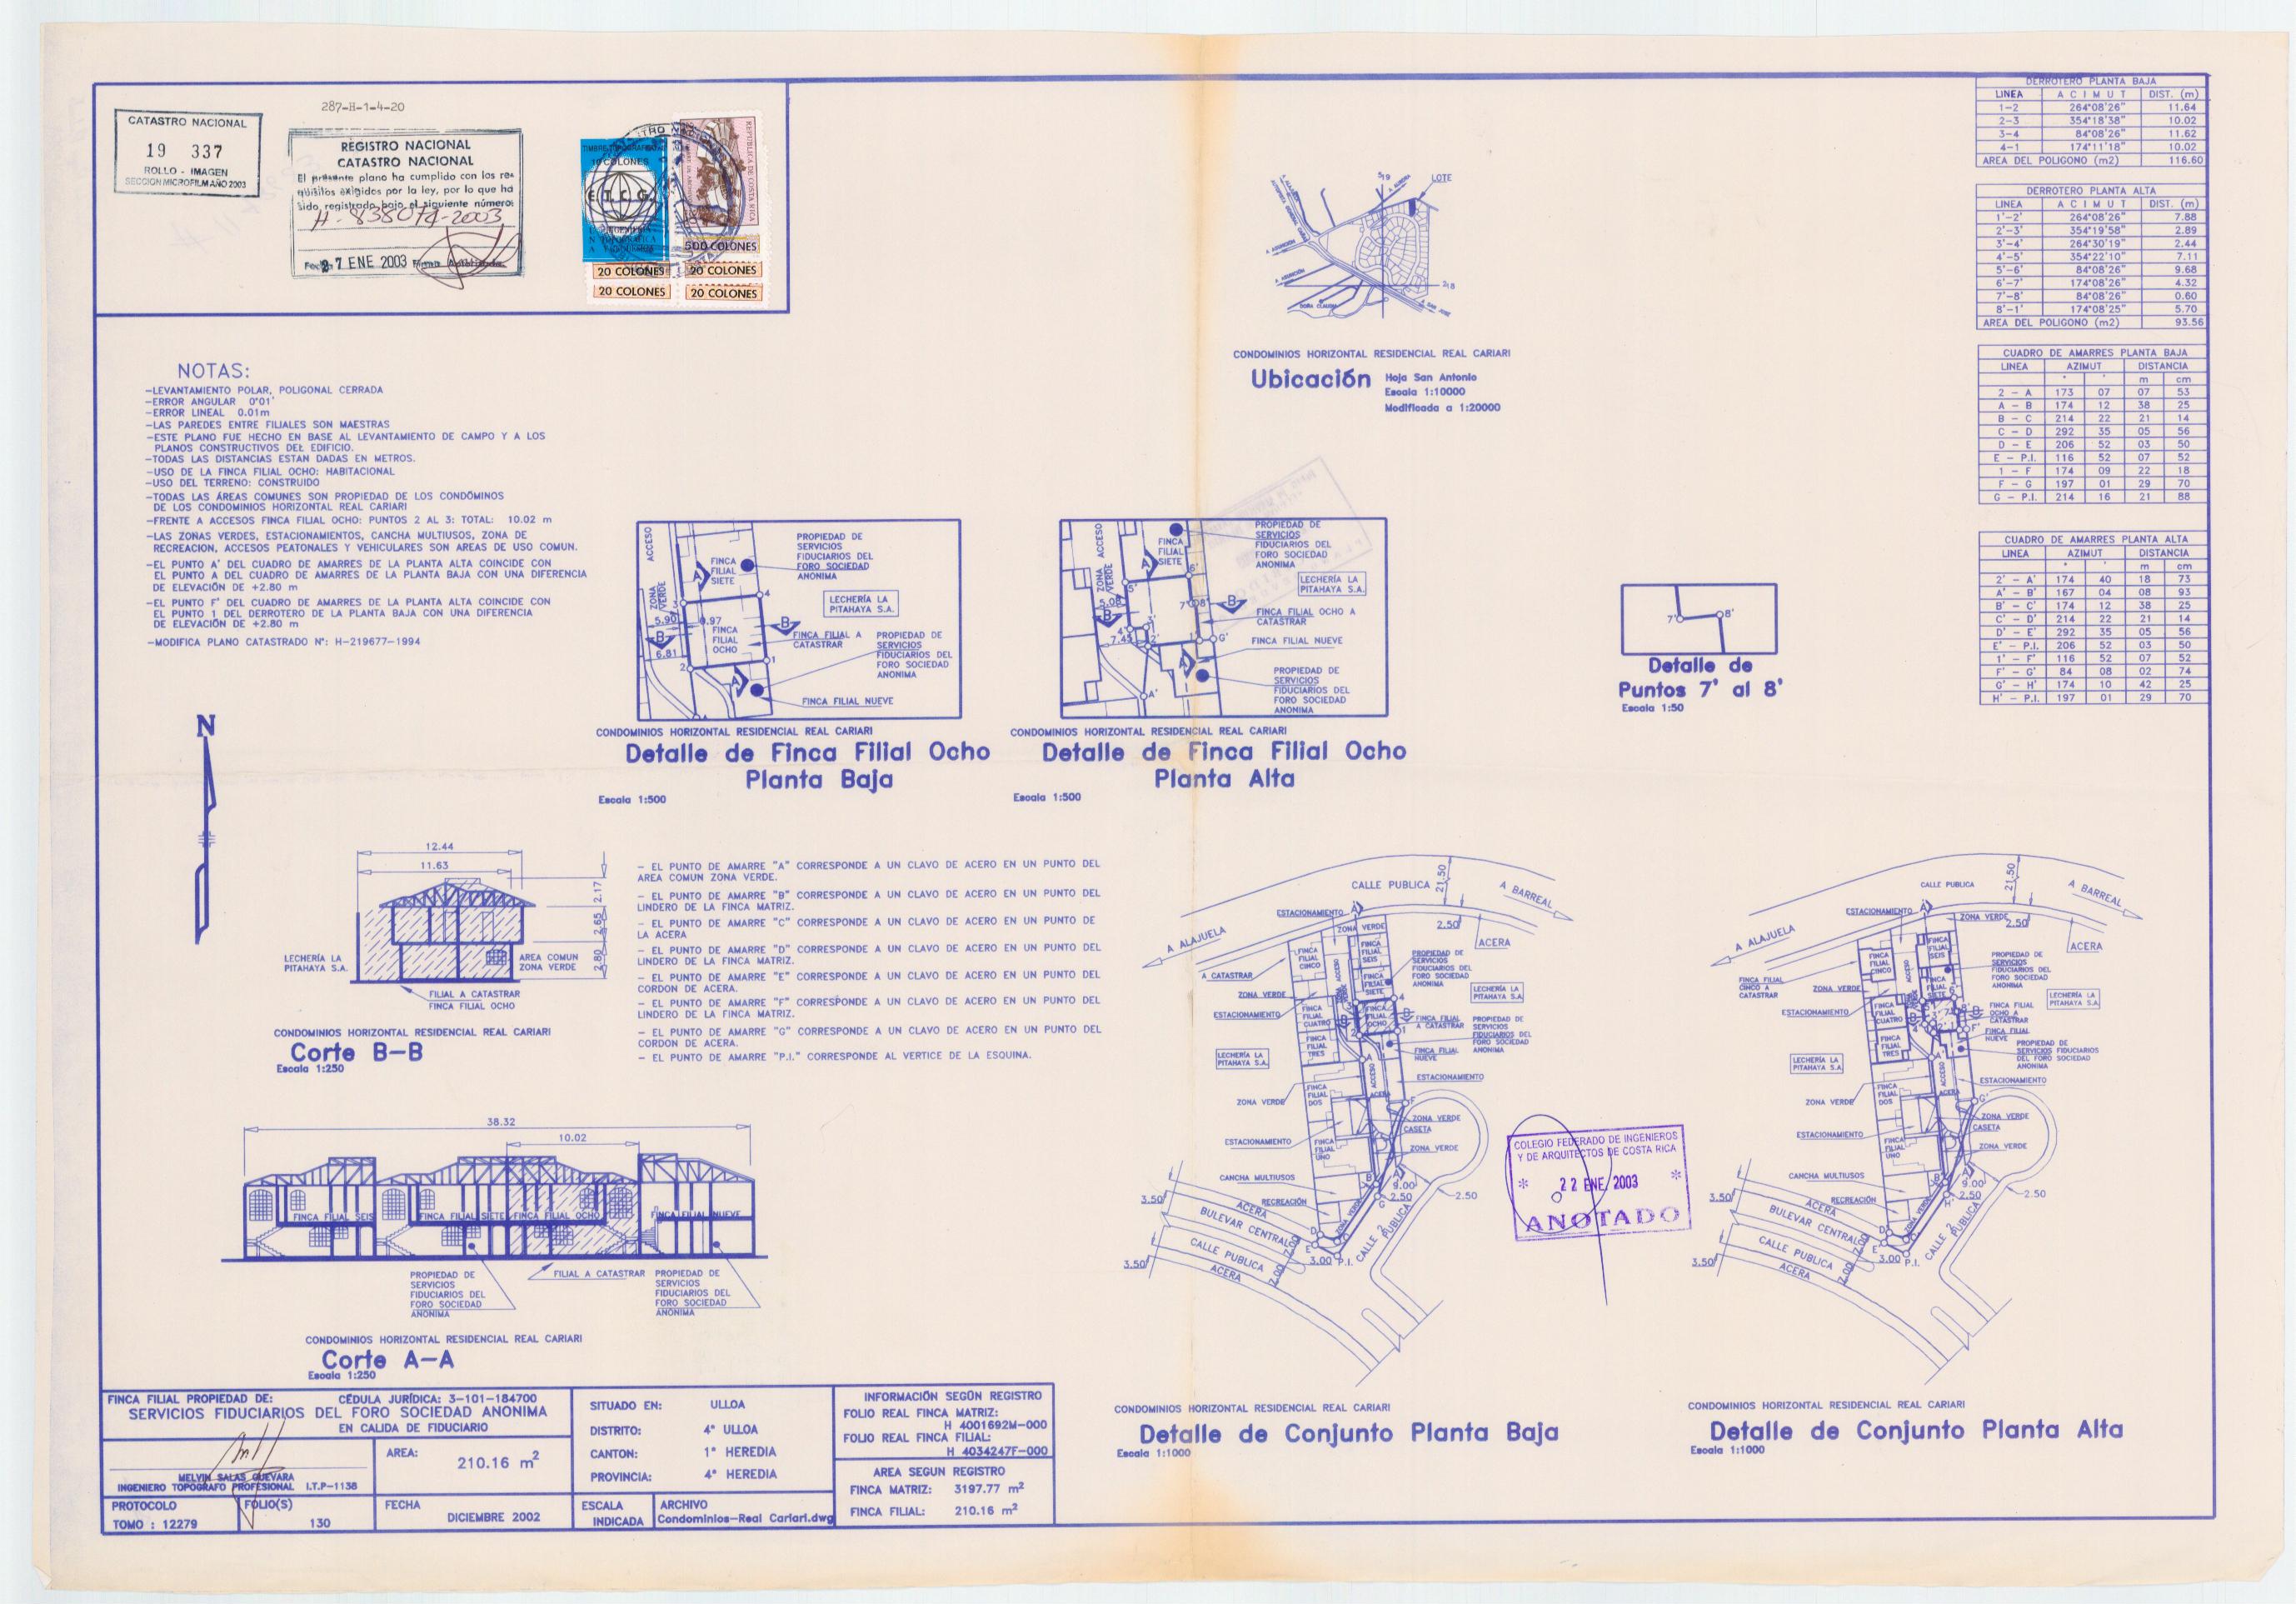 287-H-1-4-20
CATASTRO NACIONAL
19 337
ROLLO - IMAGEN
SECCION MICROFILM AÑO 2003
REGISTRO NACIONAL
CATASTRO NACIONAL
El presente plano ha cumplido con los re-
quisitos exigidos por la ley, por lo que ha
sido registrado bajo el siguiente número:
H-838074-2003
Fecha 27 ENE 2003 Firma Autorizada
TIMBRE TOPOGRAFICO
10 COLONES
E.T.C.G.
REPUBLICA DE COSTA RICA
500 COLONES
20 COLONES 20 COLONES
20 COLONES 20 COLONES
NOTAS:
-LEVANTAMIENTO POLAR, POLIGONAL CERRADA
-ERROR ANGULAR 0°01'
-ERROR LINEAL 0.01m
-LAS PAREDES ENTRE FILIALES SON MAESTRAS
-ESTE PLANO FUE HECHO EN BASE AL LEVANTAMIENTO DE CAMPO Y A LOS
PLANOS CONSTRUCTIVOS DEL EDIFICIO.
-TODAS LAS DISTANCIAS ESTAN DADAS EN METROS.
-USO DE LA FINCA FILIAL OCHO: HABITACIONAL
-USO DEL TERRENO: CONSTRUIDO
-TODAS LAS ÁREAS COMUNES SON PROPIEDAD DE LOS CONDÓMINOS
DE LOS CONDOMINIOS HORIZONTAL REAL CARIARI
-FRENTE A ACCESOS FINCA FILIAL OCHO: PUNTOS 2 AL 3: TOTAL: 10.02 m
-LAS ZONAS VERDES, ESTACIONAMIENTOS, CANCHA MULTIUSOS, ZONA DE
RECREACION, ACCESOS PEATONALES Y VEHICULARES SON AREAS DE USO COMUN.
-EL PUNTO A' DEL CUADRO DE AMARRES DE LA PLANTA ALTA COINCIDE CON
EL PUNTO A DEL CUADRO DE AMARRES DE LA PLANTA BAJA CON UNA DIFERENCIA
DE ELEVACIÓN DE +2.80 m
-EL PUNTO F' DEL CUADRO DE AMARRES DE LA PLANTA ALTA COINCIDE CON
EL PUNTO 1 DEL DERROTERO DE LA PLANTA BAJA CON UNA DIFERENCIA
DE ELEVACIÓN DE +2.80 m
-MODIFICA PLANO CATASTRADO N°: H-219677-1994
N
LOTE
CONDOMINIOS HORIZONTAL RESIDENCIAL REAL CARIARI
Ubicación Hoja San Antonio
Escala 1:10000
Modificada a 1:20000
DERROTERO PLANTA BAJA
LINEA ACIMUT DIST. (m)
1-2 264°08'26" 11.64
2-3 354°18'38" 10.02
3-4 84°08'26" 11.62
4-1 174°11'18" 10.02
AREA DEL POLIGONO (m2) 116.60
DERROTERO PLANTA ALTA
LINEA ACIMUT DIST. (m)
1'-2' 264°08'26" 7.88
2'-3' 354°19'58" 2.89
3'-4' 264°30'19" 2.44
4'-5' 354°22'10" 7.11
5'-6' 84°08'26" 9.68
6'-7' 174°08'26" 4.32
7'-8' 84°08'26" 0.60
8'-1' 174°08'25" 5.70
AREA DEL POLIGONO (m2) 93.56
CUADRO DE AMARRES PLANTA BAJA
LINEA AZIMUT DISTANCIA
° ' m cm
2 - A 173 07 07 53
A - B 174 12 38 25
B - C 214 22 21 14
C - D 292 35 05 56
D - E 206 52 03 50
E - P.I. 116 52 07 52
1 - F 174 09 22 18
F - G 197 01 29 70
G - P.I. 214 16 21 88
CUADRO DE AMARRES PLANTA ALTA
LINEA AZIMUT DISTANCIA
° ' m cm
2' - A' 174 40 18 73
A' - B' 167 04 08 93
B' - C' 174 12 38 25
C' - D' 214 22 21 14
D' - E' 292 35 05 56
E' - P.I. 206 52 03 50
1' - F' 116 52 07 52
F' - G' 84 08 02 74
G' - H' 174 10 42 25
H' - P.I. 197 01 29 70
ACCESO
ZONA VERDE
FINCA FILIAL SIETE
FINCA FILIAL OCHO
5.90
6.97
6.81
PROPIEDAD DE
SERVICIOS
FIDUCIARIOS DEL
FORO SOCIEDAD
ANONIMA
LECHERÍA LA
PITAHAYA S.A.
FINCA FILIAL A
CATASTRAR
PROPIEDAD DE
SERVICIOS
FIDUCIARIOS DEL
FORO SOCIEDAD
ANONIMA
FINCA FILIAL NUEVE
CONDOMINIOS HORIZONTAL RESIDENCIAL REAL CARIARI
Detalle de Finca Filial Ocho
Planta Baja
Escala 1:500
ACCESO
ZONA VERDE
FINCA
FILIAL
SIETE
PROPIEDAD DE
SERVICIOS
FIDUCIARIOS DEL
FORO SOCIEDAD
ANONIMA
LECHERÍA LA
PITAHAYA S.A.
FINCA FILIAL OCHO A
CATASTRAR
FINCA FILIAL NUEVE
PROPIEDAD DE
SERVICIOS
FIDUCIARIOS DEL
FORO SOCIEDAD
ANONIMA
CONDOMINIOS HORIZONTAL RESIDENCIAL REAL CARIARI
Detalle de Finca Filial Ocho
Planta Alta
Escala 1:500
7' 8'
Detalle de
Puntos 7' al 8'
Escala 1:50
12.44
11.63
2.17
2.65
2.80
LECHERÍA LA
PITAHAYA S.A.
AREA COMUN
ZONA VERDE
FILIAL A CATASTRAR
FINCA FILIAL OCHO
CONDOMINIOS HORIZONTAL RESIDENCIAL REAL CARIARI
Corte B-B
Escala 1:250
- EL PUNTO DE AMARRE "A" CORRESPONDE A UN CLAVO DE ACERO EN UN PUNTO DEL
AREA COMUN ZONA VERDE.
- EL PUNTO DE AMARRE "B" CORRESPONDE A UN CLAVO DE ACERO EN UN PUNTO DEL
LINDERO DE LA FINCA MATRIZ.
- EL PUNTO DE AMARRE "C" CORRESPONDE A UN CLAVO DE ACERO EN UN PUNTO DE
LA ACERA
- EL PUNTO DE AMARRE "D" CORRESPONDE A UN CLAVO DE ACERO EN UN PUNTO DEL
LINDERO DE LA FINCA MATRIZ.
- EL PUNTO DE AMARRE "E" CORRESPONDE A UN CLAVO DE ACERO EN UN PUNTO DEL
CORDON DE ACERA.
- EL PUNTO DE AMARRE "F" CORRESPONDE A UN CLAVO DE ACERO EN UN PUNTO DEL
LINDERO DE LA FINCA MATRIZ.
- EL PUNTO DE AMARRE "G" CORRESPONDE A UN CLAVO DE ACERO EN UN PUNTO DEL
CORDON DE ACERA.
- EL PUNTO DE AMARRE "P.I." CORRESPONDE AL VERTICE DE LA ESQUINA.
38.32
10.02
FINCA FILIAL SEIS FINCA FILIAL SIETE FINCA FILIAL OCHO FINCA FILIAL NUEVE
PROPIEDAD DE
SERVICIOS
FIDUCIARIOS DEL
FORO SOCIEDAD
ANONIMA
FILIAL A CATASTRAR
PROPIEDAD DE
SERVICIOS
FIDUCIARIOS DEL
FORO SOCIEDAD
ANONIMA
CONDOMINIOS HORIZONTAL RESIDENCIAL REAL CARIARI
Corte A-A
Escala 1:250
CALLE PUBLICA
21.50
A BARREAL
A ALAJUELA
ESTACIONAMIENTO
ZONA VERDE
2.50
ACERA
A CATASTRAR
ZONA VERDE
ESTACIONAMIENTO
LECHERÍA LA
PITAHAYA S.A.
ZONA VERDE
ESTACIONAMIENTO
CANCHA MULTIUSOS
RECREACIÓN
PROPIEDAD DE
SERVICIOS
FIDUCIARIOS DEL
FORO SOCIEDAD
ANONIMA
LECHERÍA LA
PITAHAYA S.A.
FINCA FILIAL
A CATASTRAR
PROPIEDAD DE
SERVICIOS
FIDUCIARIOS DEL
FORO SOCIEDAD
ANONIMA
FINCA FILIAL
NUEVE
ESTACIONAMIENTO
ZONA VERDE
CASETA
ZONA VERDE
9.00
2.50
2.50
3.50
ACERA
BULEVAR CENTRAL
CALLE PUBLICA
ACERA
3.50
7.00
7.00
3.00 P.I.
CALLE PUBLICA
CONDOMINIOS HORIZONTAL RESIDENCIAL REAL CARIARI
Detalle de Conjunto Planta Baja
Escala 1:1000
COLEGIO FEDERADO DE INGENIEROS
Y DE ARQUITECTOS DE COSTA RICA
22 ENE 2003
ANOTADO
CALLE PUBLICA
21.50
A BARREAL
A ALAJUELA
ESTACIONAMIENTO
ZONA VERDE
2.50
ACERA
FINCA FILIAL
CINCO A
CATASTRAR
ZONA VERDE
ESTACIONAMIENTO
LECHERÍA LA
PITAHAYA S.A.
ZONA VERDE
ESTACIONAMIENTO
CANCHA MULTIUSOS
RECREACIÓN
PROPIEDAD DE
SERVICIOS
FIDUCIARIOS DEL
FORO SOCIEDAD
ANONIMA
LECHERÍA LA
PITAHAYA S.A.
FINCA FILIAL
OCHO A
CATASTRAR
FINCA FILIAL
NUEVE
PROPIEDAD DE
SERVICIOS FIDUCIARIOS
DEL FORO SOCIEDAD
ANONIMA
ESTACIONAMIENTO
ZONA VERDE
CASETA
ZONA VERDE
9.00
2.50
2.50
3.50
ACERA
BULEVAR CENTRAL
CALLE PUBLICA
ACERA
3.50
7.00
7.00
3.00 P.I.
CALLE PUBLICA
CONDOMINIOS HORIZONTAL RESIDENCIAL REAL CARIARI
Detalle de Conjunto Planta Alta
Escala 1:1000
FINCA FILIAL PROPIEDAD DE: CÉDULA JURÍDICA: 3-101-184700
SERVICIOS FIDUCIARIOS DEL FORO SOCIEDAD ANONIMA
EN CALIDA DE FIDUCIARIO
MELVIN SALAS GUEVARA
INGENIERO TOPOGRAFO PROFESIONAL I.T.P-1138
AREA:
210.16 m²
PROTOCOLO
TOMO : 12279
FOLIO(S)
130
FECHA
DICIEMBRE 2002
SITUADO EN: ULLOA
DISTRITO: 4° ULLOA
CANTON: 1° HEREDIA
PROVINCIA: 4° HEREDIA
ESCALA
INDICADA
ARCHIVO
Condominios-Real Cariari.dwg
INFORMACIÓN SEGÚN REGISTRO
FOLIO REAL FINCA MATRIZ:
H 4001692M-000
FOLIO REAL FINCA FILIAL:
H 4034247F-000
AREA SEGUN REGISTRO
FINCA MATRIZ: 3197.77 m²
FINCA FILIAL: 210.16 m²